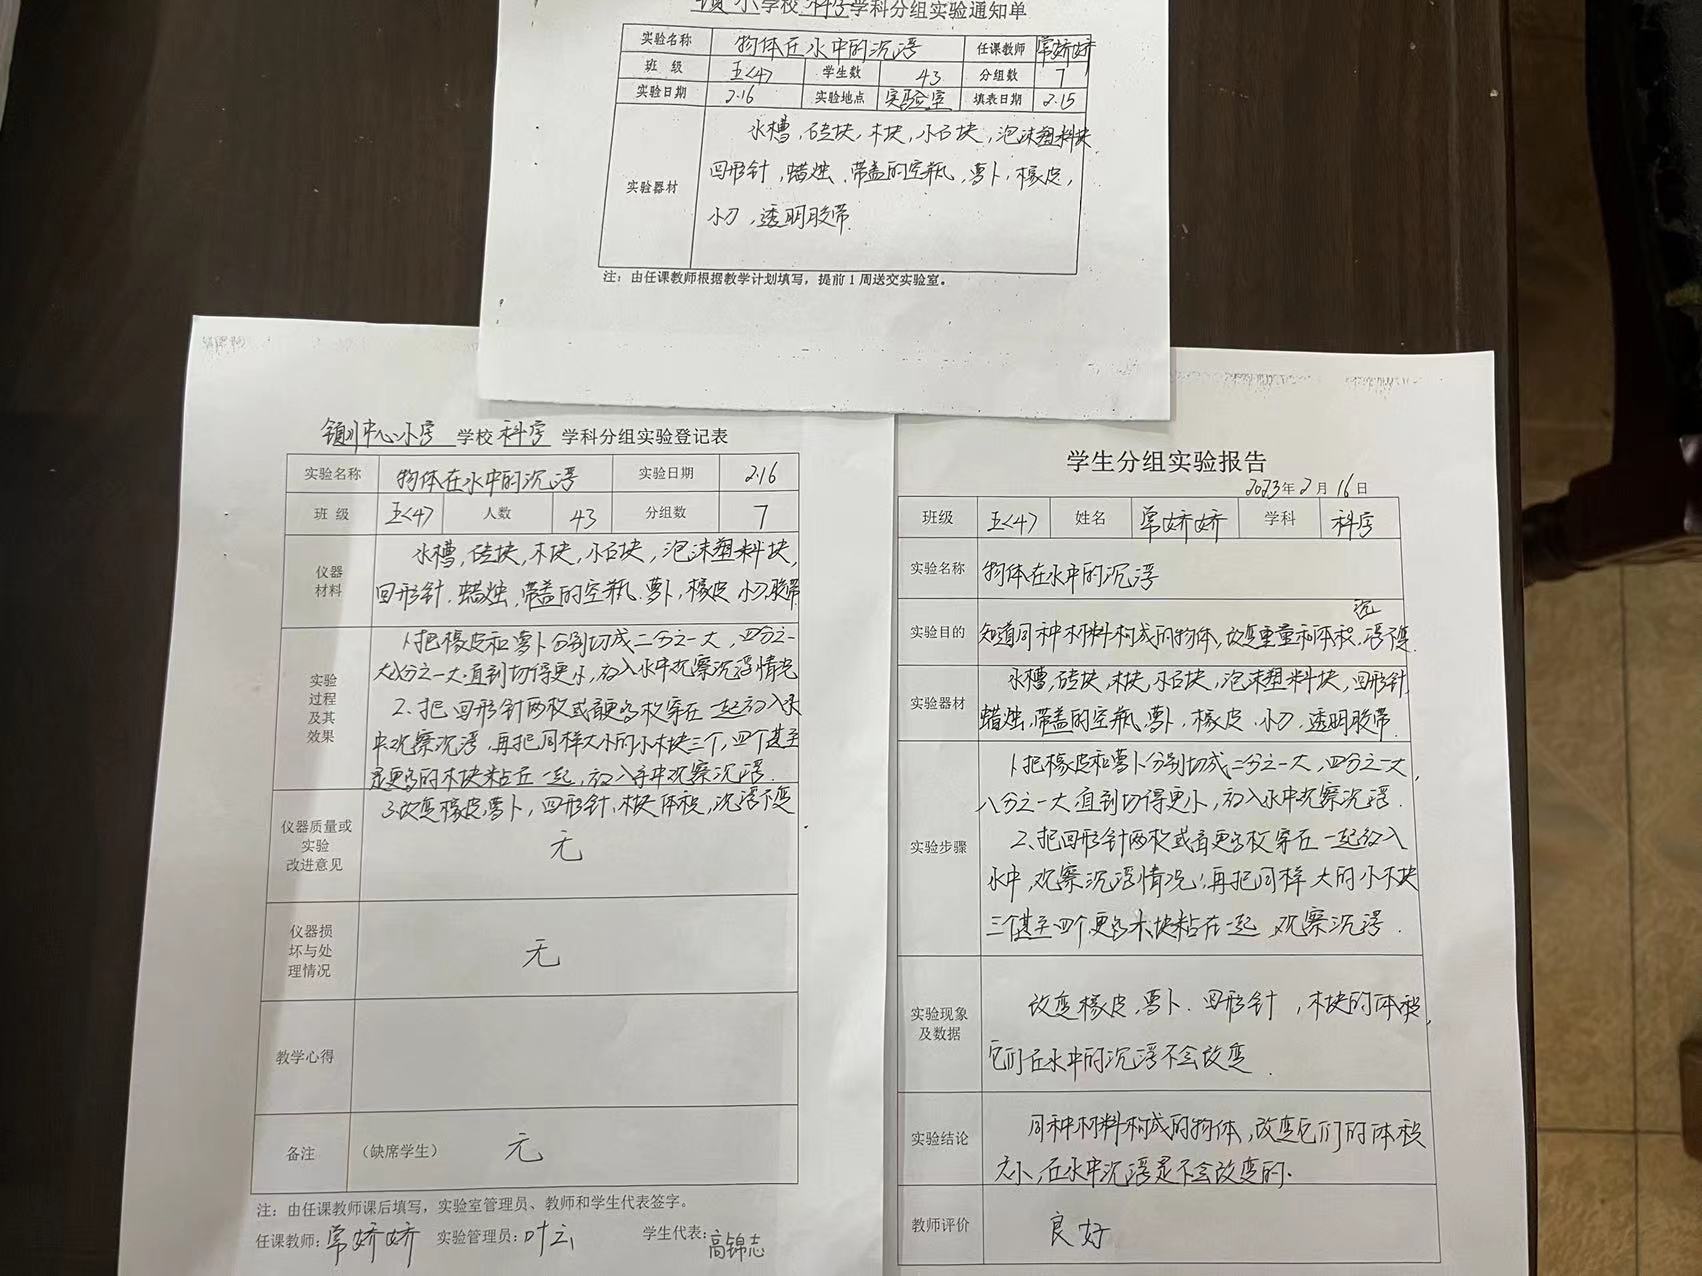 镇小学校科学学科分组实验通知单
实验名称 物体在水中的沉浮 任课教师 常娇娇
班 级 五<4> 学生数 43 分组数 7
实验日期 2.16 实验地点 实验室 填表日期 2.15
实验器材
水槽,砖块,木块,小石块,泡沫塑料块,
回形针,蜡烛、带盖的空瓶,萝卜,橡皮,
小刀,透明胶带.
注：由任课教师根据教学计划填写，提前1周送交实验室。
镇川中心小学 学校 科学 学科分组实验登记表
实验名称 物体在水中的沉浮 实验日期 2.16
班 级 五<4> 人数 43 分组数 7
仪器
材料
水槽,砖块,木块,小石块,泡沫塑料块,
回形针.蜡烛、带盖的空瓶.萝卜,橡皮 小刀.胶带
实验
过程
及其
效果
1.把橡皮和萝卜分别切成二分之一大,四分之一
大八分之一大.直到切得更小,放入水中观察沉浮情况
2、把回形针两枚或者更多枚穿在一起放入水
中,观察沉浮,再把同样大小的小木块三个,四个甚至
是更多的木块粘在一起,放入水中观察沉浮.
3.改变橡皮,萝卜,回形针,木块体积,沉浮不变
仪器质量或
实验
改进意见
无
仪器损
坏与处
理情况
无
教学心得
备注 （缺席学生） 无
注：由任课教师课后填写，实验室管理员、教师和学生代表签字。
任课教师：常娇娇 实验管理员：叶云 学生代表：高锦志
学生分组实验报告
2023年2月16日
班级 五<4> 姓名 常娇娇 学科 科学
实验名称 物体在水中的沉浮
实验目的 知道同种材料构成的物体,改变重量和体积,沉浮不变.
实验器材
水槽,砖块,木块,小石块,泡沫塑料块,回形针,
蜡烛、带盖的空瓶,萝卜,橡皮、小刀,透明胶带.
实验步骤
1.把橡皮和萝卜分别切成二分之一大,四分之一大,
八分之一大.直到切得更小,放入水中观察沉浮.
2、把回形针两枚或者更多枚穿在一起放入
水中,观察沉浮情况,再把同样大的小木块
三个甚至四个,更多木块粘在一起,观察沉浮.
实验现象
及数据
改变橡皮,萝卜.回形针,木块的体积,
它们在水中的沉浮不会改变.
实验结论
同种材料构成的物体,改变它们的体积
大小,在水中沉浮是不会改变的.
教师评价 良好